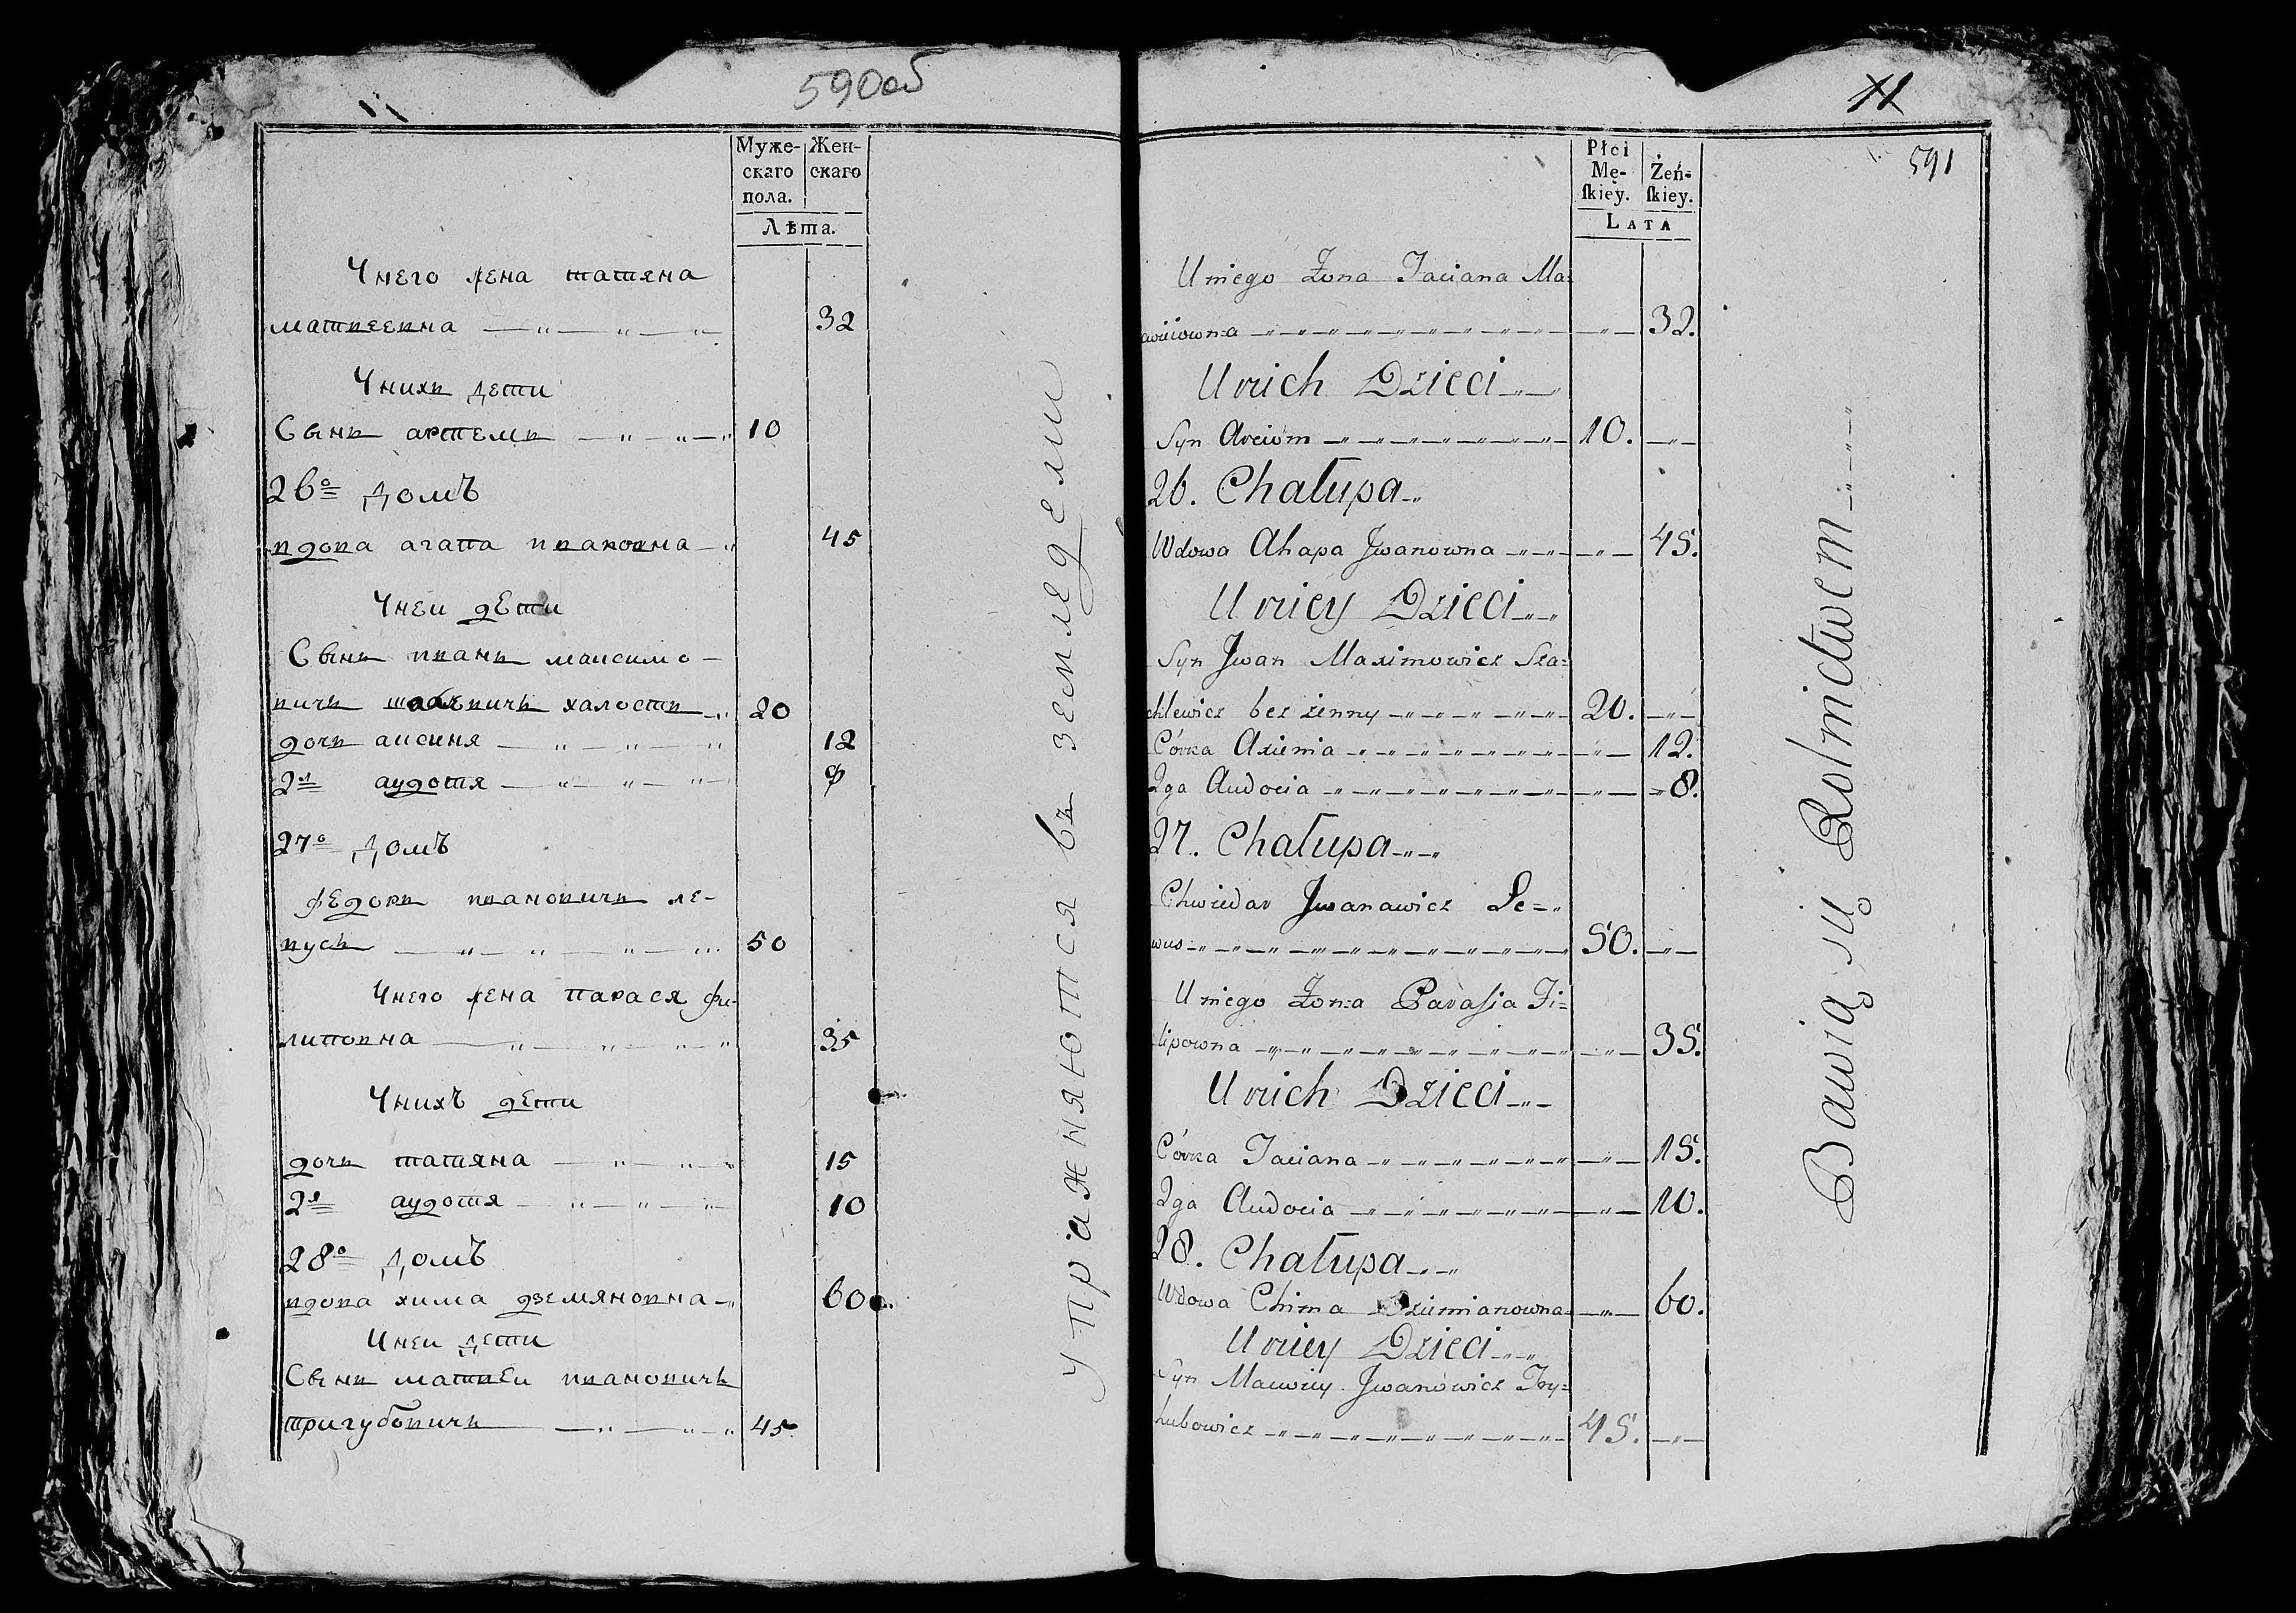 590об
11
Муже-
скаго
пола.
Жен-
скаго
Лѣта.
Унего жена татяна
матвеевна 32
Унихъ дети
Сынъ артемъ 10
26о домъ
вдова агапа ивановна 45
Унеи дети
Сынъ иванъ максимо-
вичъ халостъ 20
дочъ аксиня 12
2я аудотя 8
27о домъ
федоръ ивановичъ ле-
вусъ 50
Унего жена парася фи-
липовна 35
Унихъ дети
дочъ татяна 15
2я аудотя 10
28о домъ
вдова хима дземяновна 60
Унеи дети
Сынъ матвеи ивановичъ
тригубовичъ 45
упражняются въ земледелии
11
591
Płci
Mę-
ſkiey.
Żeń-
ſkiey.
LATA
U niego Żona Taciana Ma=
32.
U nich Dzieci
Syn Arciom 10.
26. Chałupa
Wdowa Ahapa Jwanowna 45.
U niey Dzieci
Syn Jwan Maximowicz Sza=
chlewicz bez żenny 20.
Córka Axienia 12.
2ga Audocia 8.
27. Chałupa
Chwiedar Jwanawicz Le=
wus 50.
U niego Żona Parasia Fi=
lipowna 35.
U nich Dzieci
Córka Taciana 15.
2ga Audocia 10.
28. Chałupa
Wdowa Chima Dziemianowna 60.
U niey Dzieci
Syn Maciwiey Jwanowicz Try=
hubowicz 45.
Bawią się Rolnictwem